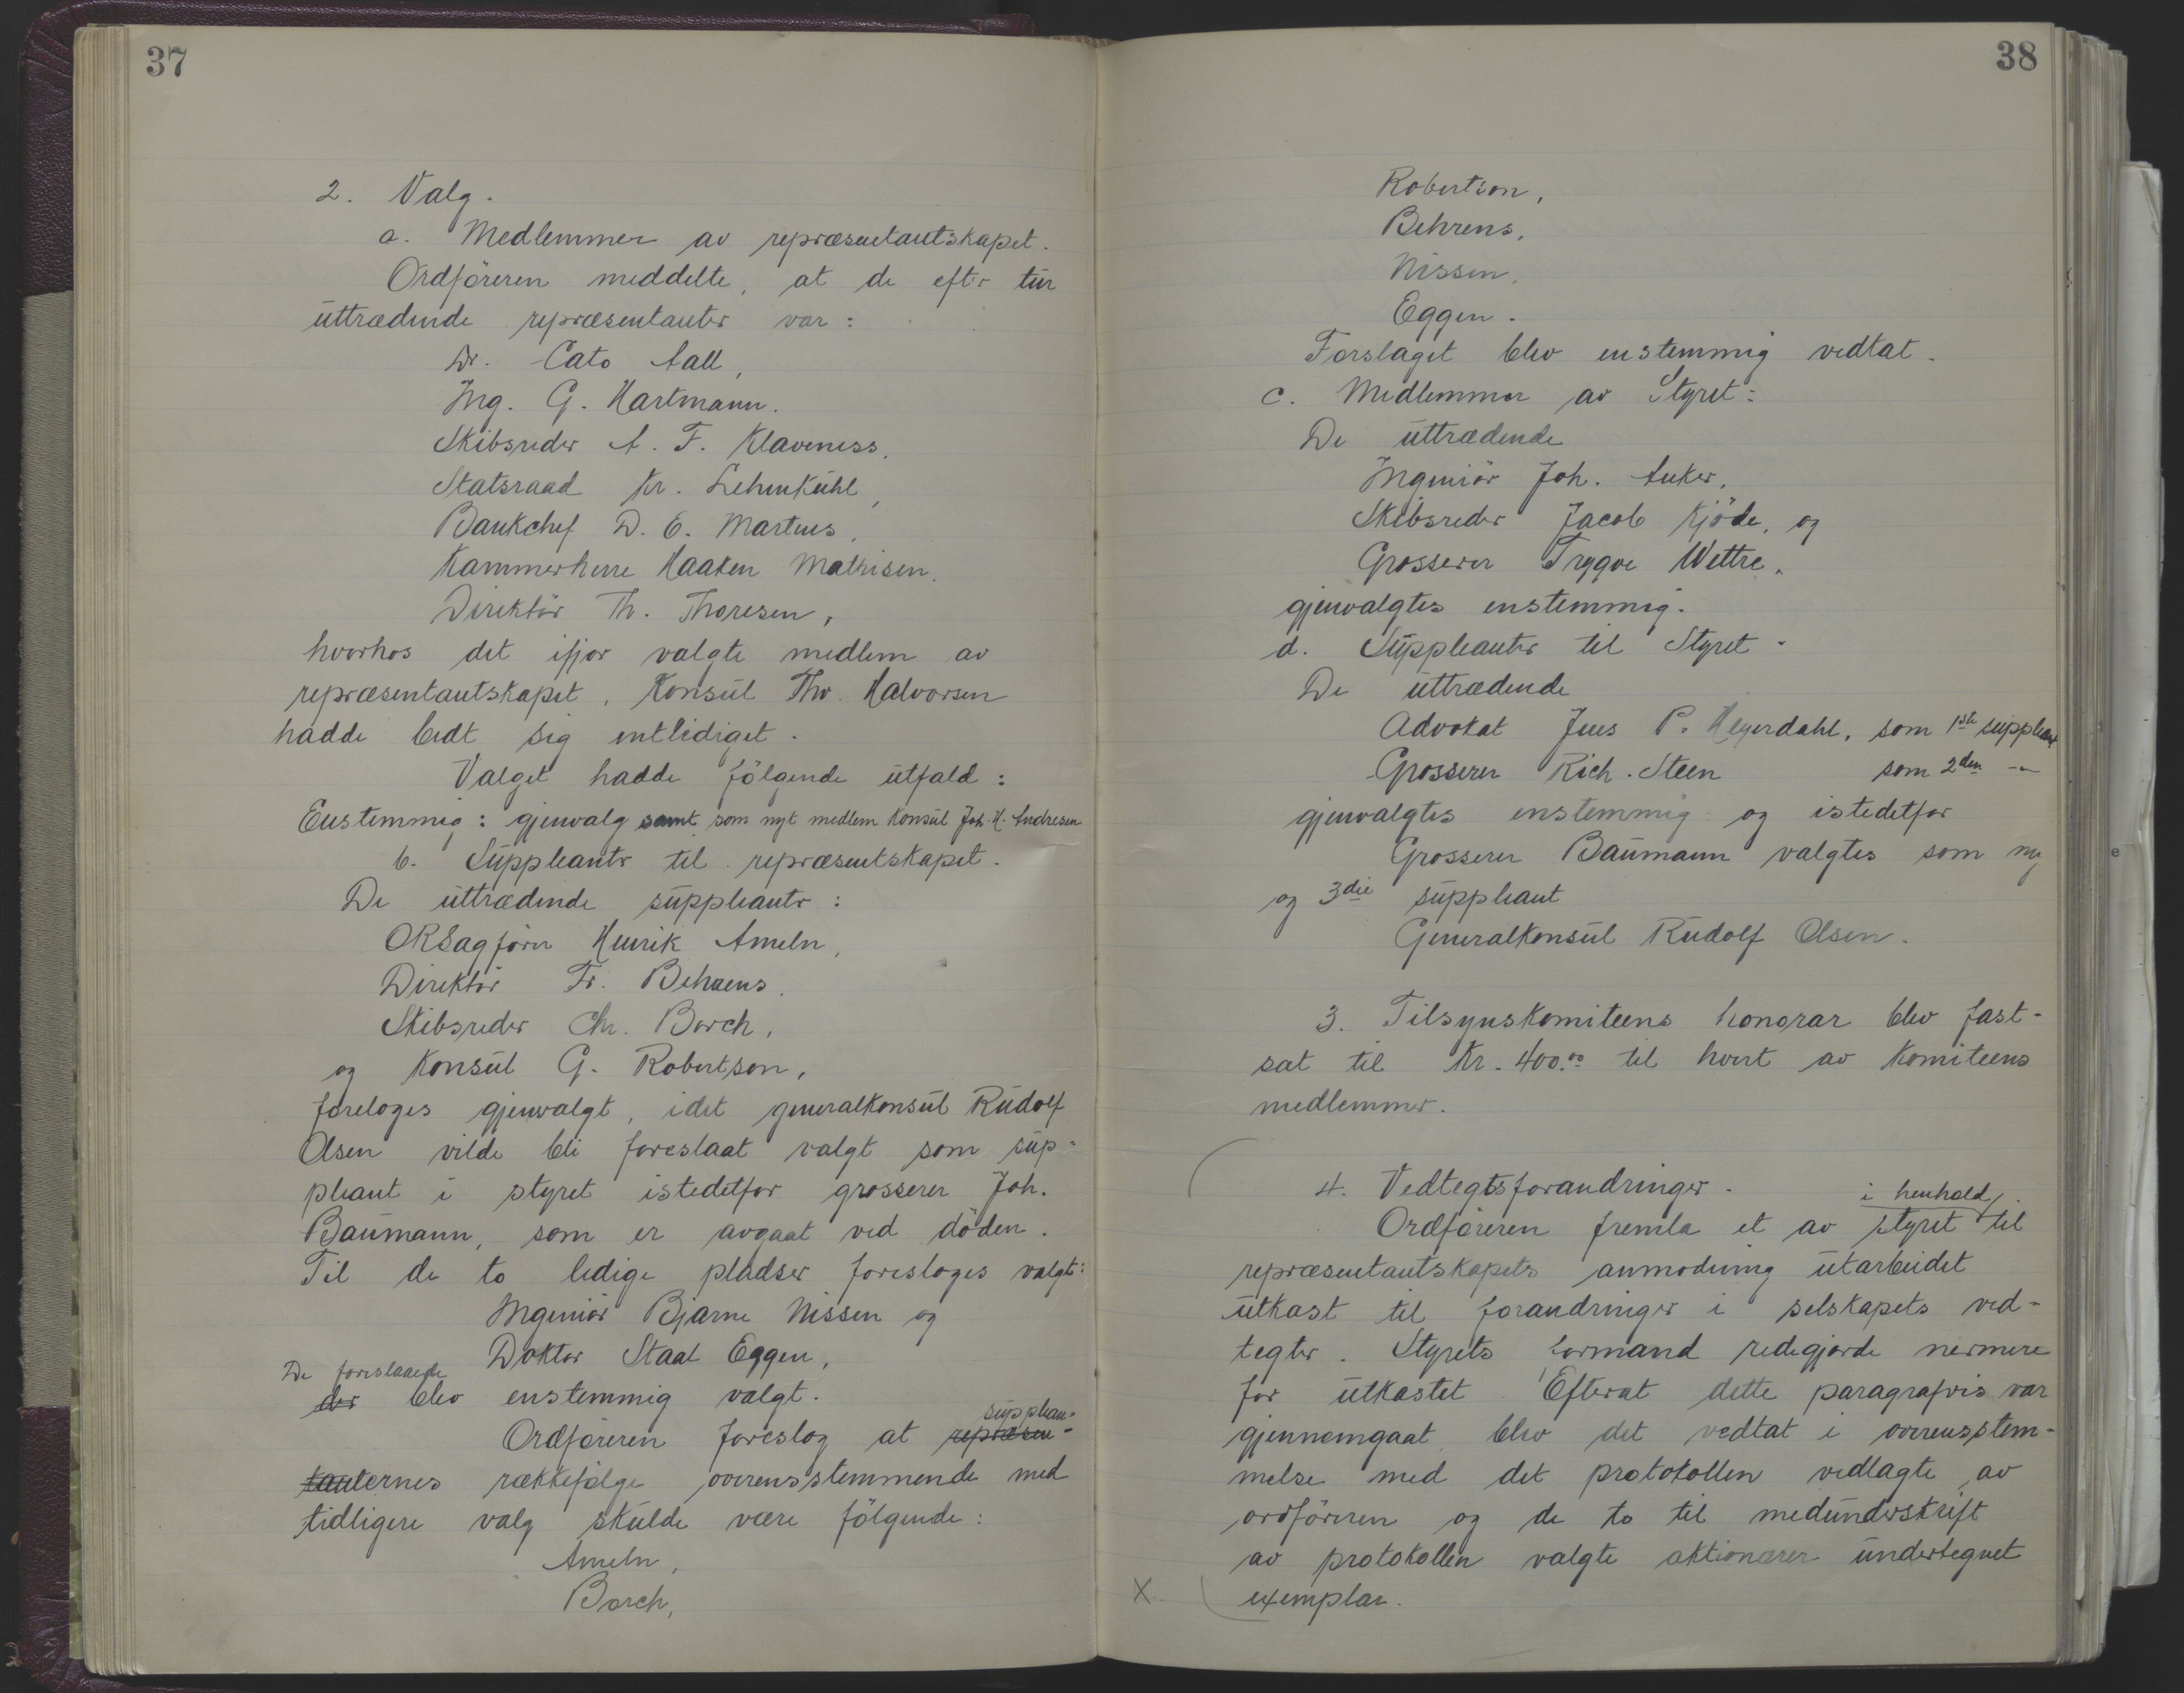 37
2. Valg.
a. Medlemmer av repræsentantskapet.
Ordföreren meddelte, at de efter tur
uttrædende repræsentanter var:
Dr. Cato Aall,
Ing. G. Hartmann.
Skibsreder A. F. Klaveness,
Statsraad Kr. Lehmkuhl,
Bankchef D. E. Martens,
Kammerherre Haaken Mathisen,
Direktör Th. Thoresen,
hvorhos det ifjor valgte medlem av
repræsentantskapet, Konsul Thv. Halvorsen
hadde bedt sig entlediget.
Valget hadde fölgende utfald:
Enstemmig: gjenvalg samt som nyt medlem Konsul Joh. H. Andresen
b. Suppleanter til repræsentskapet.
De uttrædende suppleanter:
ORSagförer Henrik Ameln,
Direktör Fr. Behrens,
Skibsreder Chr. Borch,
og Konsul G. Robertson,
foreloges gjenvalgt, idet generalkonsul Rudolf
Olsen vilde bli foreslaat valgt som sup-
pleant i styret istedetfor grosserer Joh.
Baumann, som er avgaat ved döden.
Til de to ledige pladser foresloges valgt:
Ingeniör Bjarne Nissen og
Doktor Staal Eggen,
De foreslaaede
der blev enstemmig valgt.
supplean-
Ordföreren foreslog at repræsen-
tanternes rækkefölge overensstemmende med
tidligere valg skulde være fölgende:
Ameln,
Borch,
38
Robertson,
Behrens,
Nissen,
Eggen.
Forslaget blev enstemmig vedtat.
c. Medlemmer av Styret:
De uttrædende
Ingeniör Joh. Anker,
Skibsreder Jacob Kjöde, og
Grosserer Trygve Wettre,
gjenvalgtes enstemmig.
d. Suppleanter til Styret.
De uttrædende
Advokat Jens P. Heyerdahl, som 1ste suppleant
Grosserer Rich. Steen som 2den -"-
gjenvalgtes enstemmig og istedetfor
Grosserer Baumann valgtes som ny
og 3die suppleant
Generalkonsul Rudolf Olsen.
3. Tilsynskomiteens honorar blev fast-
sat til Kr. 400.00 til hvert av Komiteens
medlemmer.
4. Vedtegtsforandringer.
i henhold
Ordföreren fremla et av styret til
repræsentantskapets anmodning utarbeidet
utkast til forandringer i selskapets ved-
tegter. Styrets formand redegjorde nermere
for utkastet. Efterat dette paragrafvis var
gjennemgaat blev det vedtat i overensstem-
melse med det protokollen vedlagte av
ordföreren og de to til medunderskrift
av protokollen valgte aktionærer undertegnet
X. exemplar.